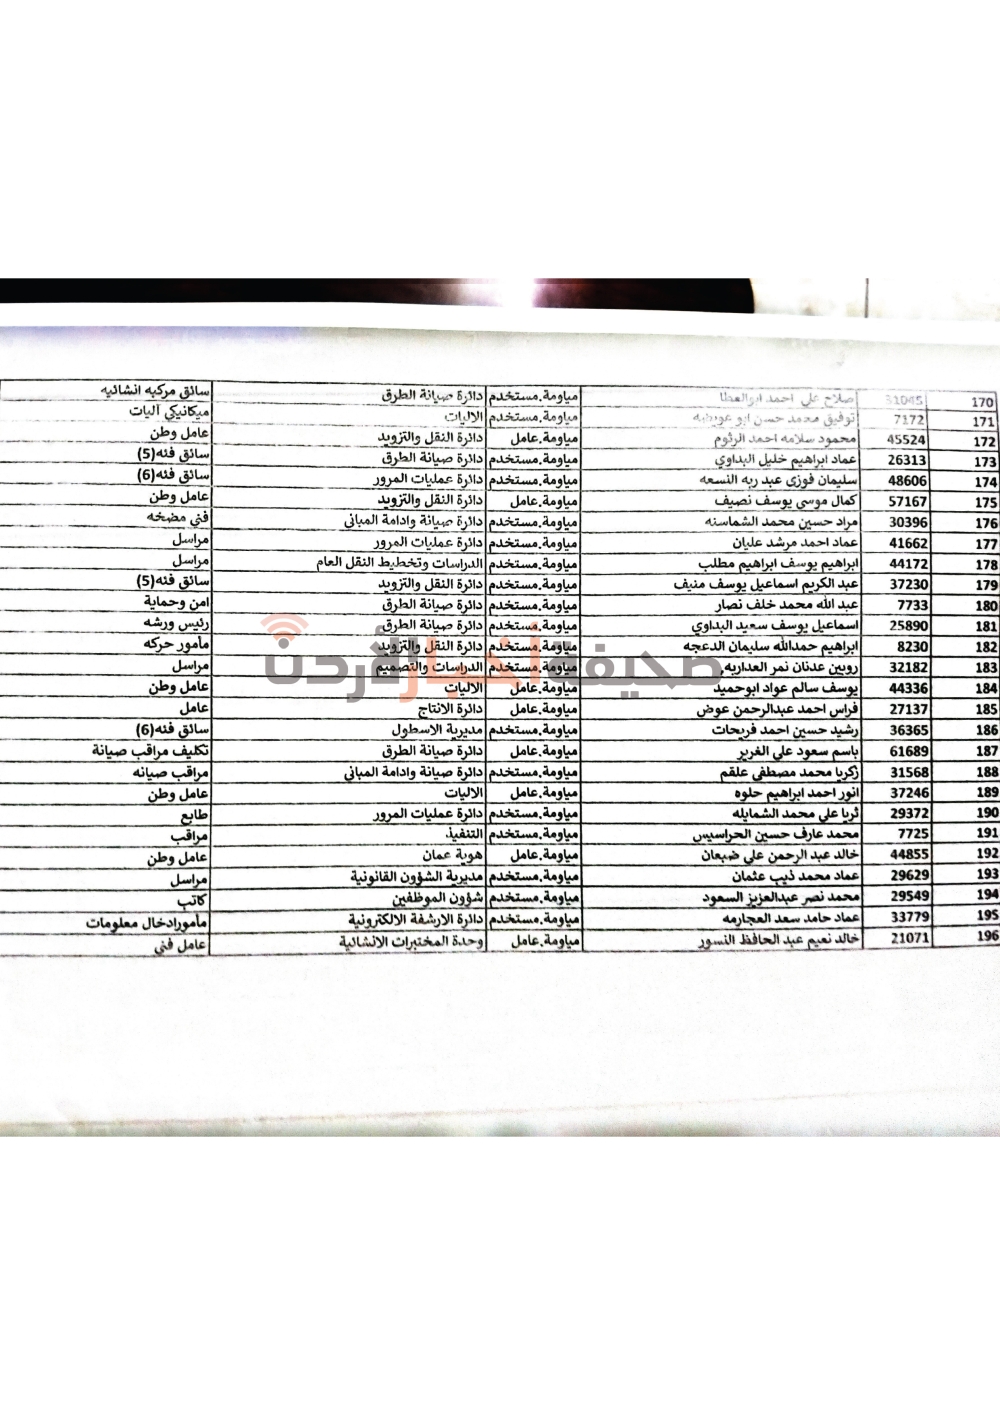 170 31045 صلاح علي احمد ابوالعطا مياومة.مستخدم دائرة صيانة الطرق سائق مركبه انشائيه
171 7172 توفيق محمد حسن ابو عويضه مياومة.مستخدم الاليات ميكانيكي آليات
172 45524 محمود سلامه احمد الرثوم مياومة.عامل دائرة النقل والتزويد عامل وطن
173 26313 عماد ابراهيم خليل البداوي مياومة.مستخدم دائرة صيانة الطرق سائق فئه(5)
174 48606 سليمان فوزى عبد ربه النسعه مياومة.مستخدم دائرة عمليات المرور سائق فئه(6)
175 57167 كمال موسى يوسف نصيف مياومة.عامل دائرة النقل والتزويد عامل وطن
176 30396 مراد حسين محمد الشماسنه مياومة.مستخدم دائرة صيانة وادامة المباني فني مضخه
177 41662 عماد احمد مرشد عليان مياومة.مستخدم دائرة عمليات المرور مراسل
178 44172 ابراهيم يوسف ابراهيم مطلب مياومة.مستخدم الدراسات وتخطيط النقل العام مراسل
179 37230 عبد الكريم اسماعيل يوسف منيف مياومة.مستخدم دائرة النقل والتزويد سائق فئه(5)
180 7733 عبد الله محمد خلف نصار مياومة.مستخدم دائرة صيانة الطرق امن وحماية
181 25890 اسماعيل يوسف سعيد البداوي مياومة.مستخدم دائرة صيانة الطرق رئيس ورشه
182 8230 ابراهيم حمدالله سليمان الدعجه مياومة.مستخدم دائرة النقل والتزويد مأمور حركه
183 32182 روبين عدنان نمر العداربه مياومة.مستخدم الدراسات والتصميم مراسل
صحيفة أخبار الأردن
184 44336 يوسف سالم عواد ابوحميد مياومة.عامل الاليات عامل وطن
185 27137 فراس احمد عبدالرحمن عوض مياومة.عامل دائرة الانتاج عامل
186 36365 رشيد حسين احمد فريحات مياومة.مستخدم مديرية الاسطول سائق فئه(6)
187 61689 باسم سعود علي الغرير مياومة.عامل دائرة صيانة الطرق تكليف مراقب صيانة
188 31568 زكريا محمد مصطفى علقم مياومة.مستخدم دائرة صيانة وادامة المباني مراقب صيانه
189 37246 انور احمد ابراهيم حلوه مياومة.عامل الاليات عامل وطن
190 29372 ثريا علي محمد الشمايله مياومة.مستخدم دائرة عمليات المرور طابع
191 7725 محمد عارف حسين الحراسيس مياومة.مستخدم التنفيذ مراقب
192 44855 خالد عبد الرحمن علي ضبعان مياومة.عامل هوية عمان عامل وطن
193 29629 عماد محمد ذيب عثمان مياومة.مستخدم مديرية الشؤون القانونية مراسل
194 29549 محمد نصر عبدالعزيز السعود مياومة.مستخدم شؤون الموظفين كاتب
195 33779 عماد حامد سعد العجارمه مياومة.مستخدم دائرة الارشفة الالكترونية مأمورادخال معلومات
196 21071 خالد نعيم عبد الحافظ النسور مياومة.عامل وحدة المختبرات الانشائية عامل فني